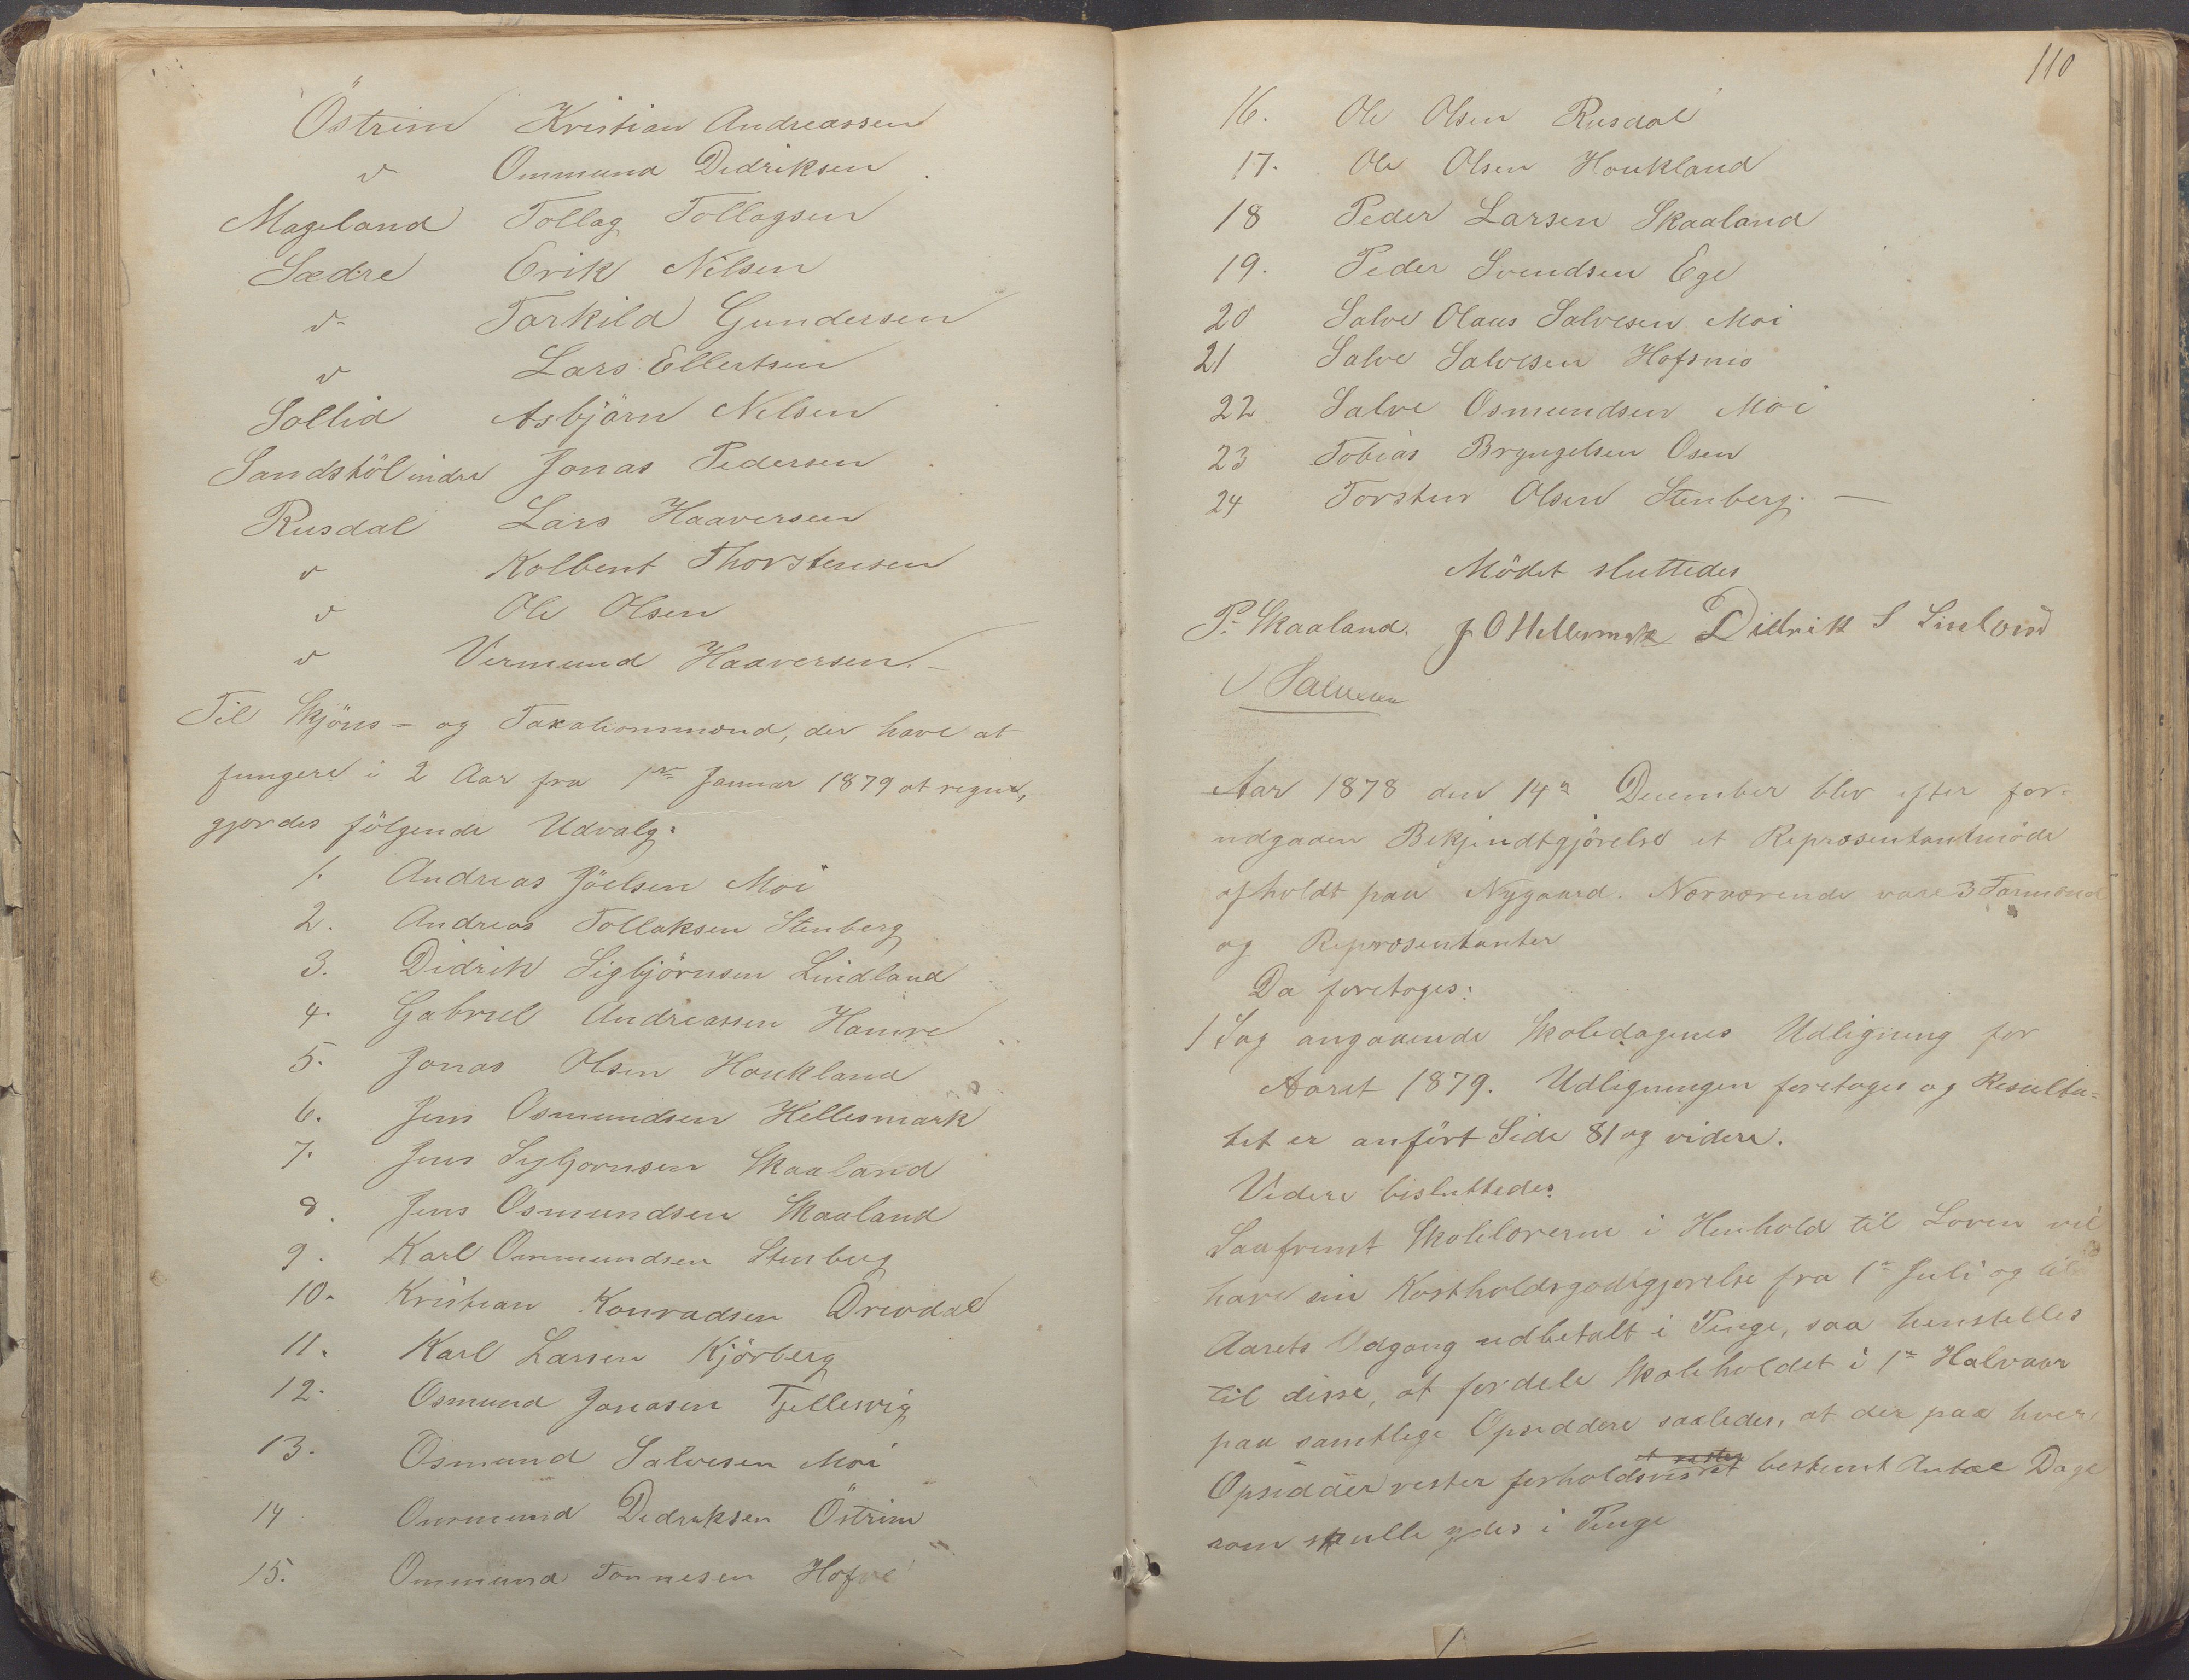 Östrim Kristian Andreassen
v Ommund Didriksen
Mageland Tollag Tollagsen
Sædre Erik Nilsen
v Torkild Gundersen
v Lars Ellertsen
Sollid Asbjörn Nilsen
Sandstöl indre Jonas Pedersen
Rusdal Lars Haaversen
v Kolbent Thorstensen
v Ole Olsen
v Vermund Haaversen.
Til Skjöns- og Taxationsmænd, der have at
fungere i 2 Aar fra 1ste Januar 1879 at regne,
gjordes fölgende Udvalg:
1. Andreas Jöelsen Moi
2. Andreas Tollaksen Stenberg
3. Didrik Sigbjörnsen Lindland
4. Gabriel Andreassen Hamre
5. Jonas Olsen Houkland
6. Jens Osmundsen Hellesmark
7. Jens Sigbjornsen Skaaland
8. Jens Osmundsen Skaaland
9. Karl Ommundsen Stenberg
10. Kristian Konradsen Drivdal
11. Karl Larsen Kjörberg
12. Osmund Jonasen Tjellesvig
13. Osmund Salvesen Moi
14 Ommund Didriksen Östrim
15. Ommund Tonnesen Hofne
110
16. Ole Olsen Rusdal
17. Ole Olsen Houkland
18 Peder Larsen Skaaland
19. Peder Svendsen Ege
20 Salve Olaus Salvesen Moi
21 Salve Salvesen Hofsmo
22 Salve Osmundsen Moi
23 Tobias Bryngelsen Osen
24 Torsten Olsen Stenberg. —
Mödet sluttedes
P. Skaaland. J O Hellesmark Didrik S Lindland
Salvesen
Aar 1878 den 14de December blev efter for-
udgaaen Bekjendtgjörelse et Repræsentantmöde
afholdt paa Nygaard. Nærværende vare 3 Formænd
og Repræsentanter
Da foretoges:
1 Sag angaaende Skoledagenes Udligning for
Aaret 1879. Udligningen foretoges og Resulta-
tet er anfört Side 81 og videre.
Videre besluttedes.
Saafremt Skolelærerne i Henhold til Loven vil
have sin Kostholdsgodtgjorelse fra 1ste Juli og til
Aarets Udgang udbetalt i Penge, saa henstilles
til disse, at fordele Skoleholdet i 1ste Halvaar
paa samtlige Opsiddere saaledes, at der paa hver
Opsidder rester forholdsvis et bestemt Antal Dage
som skulle ydes i Penge